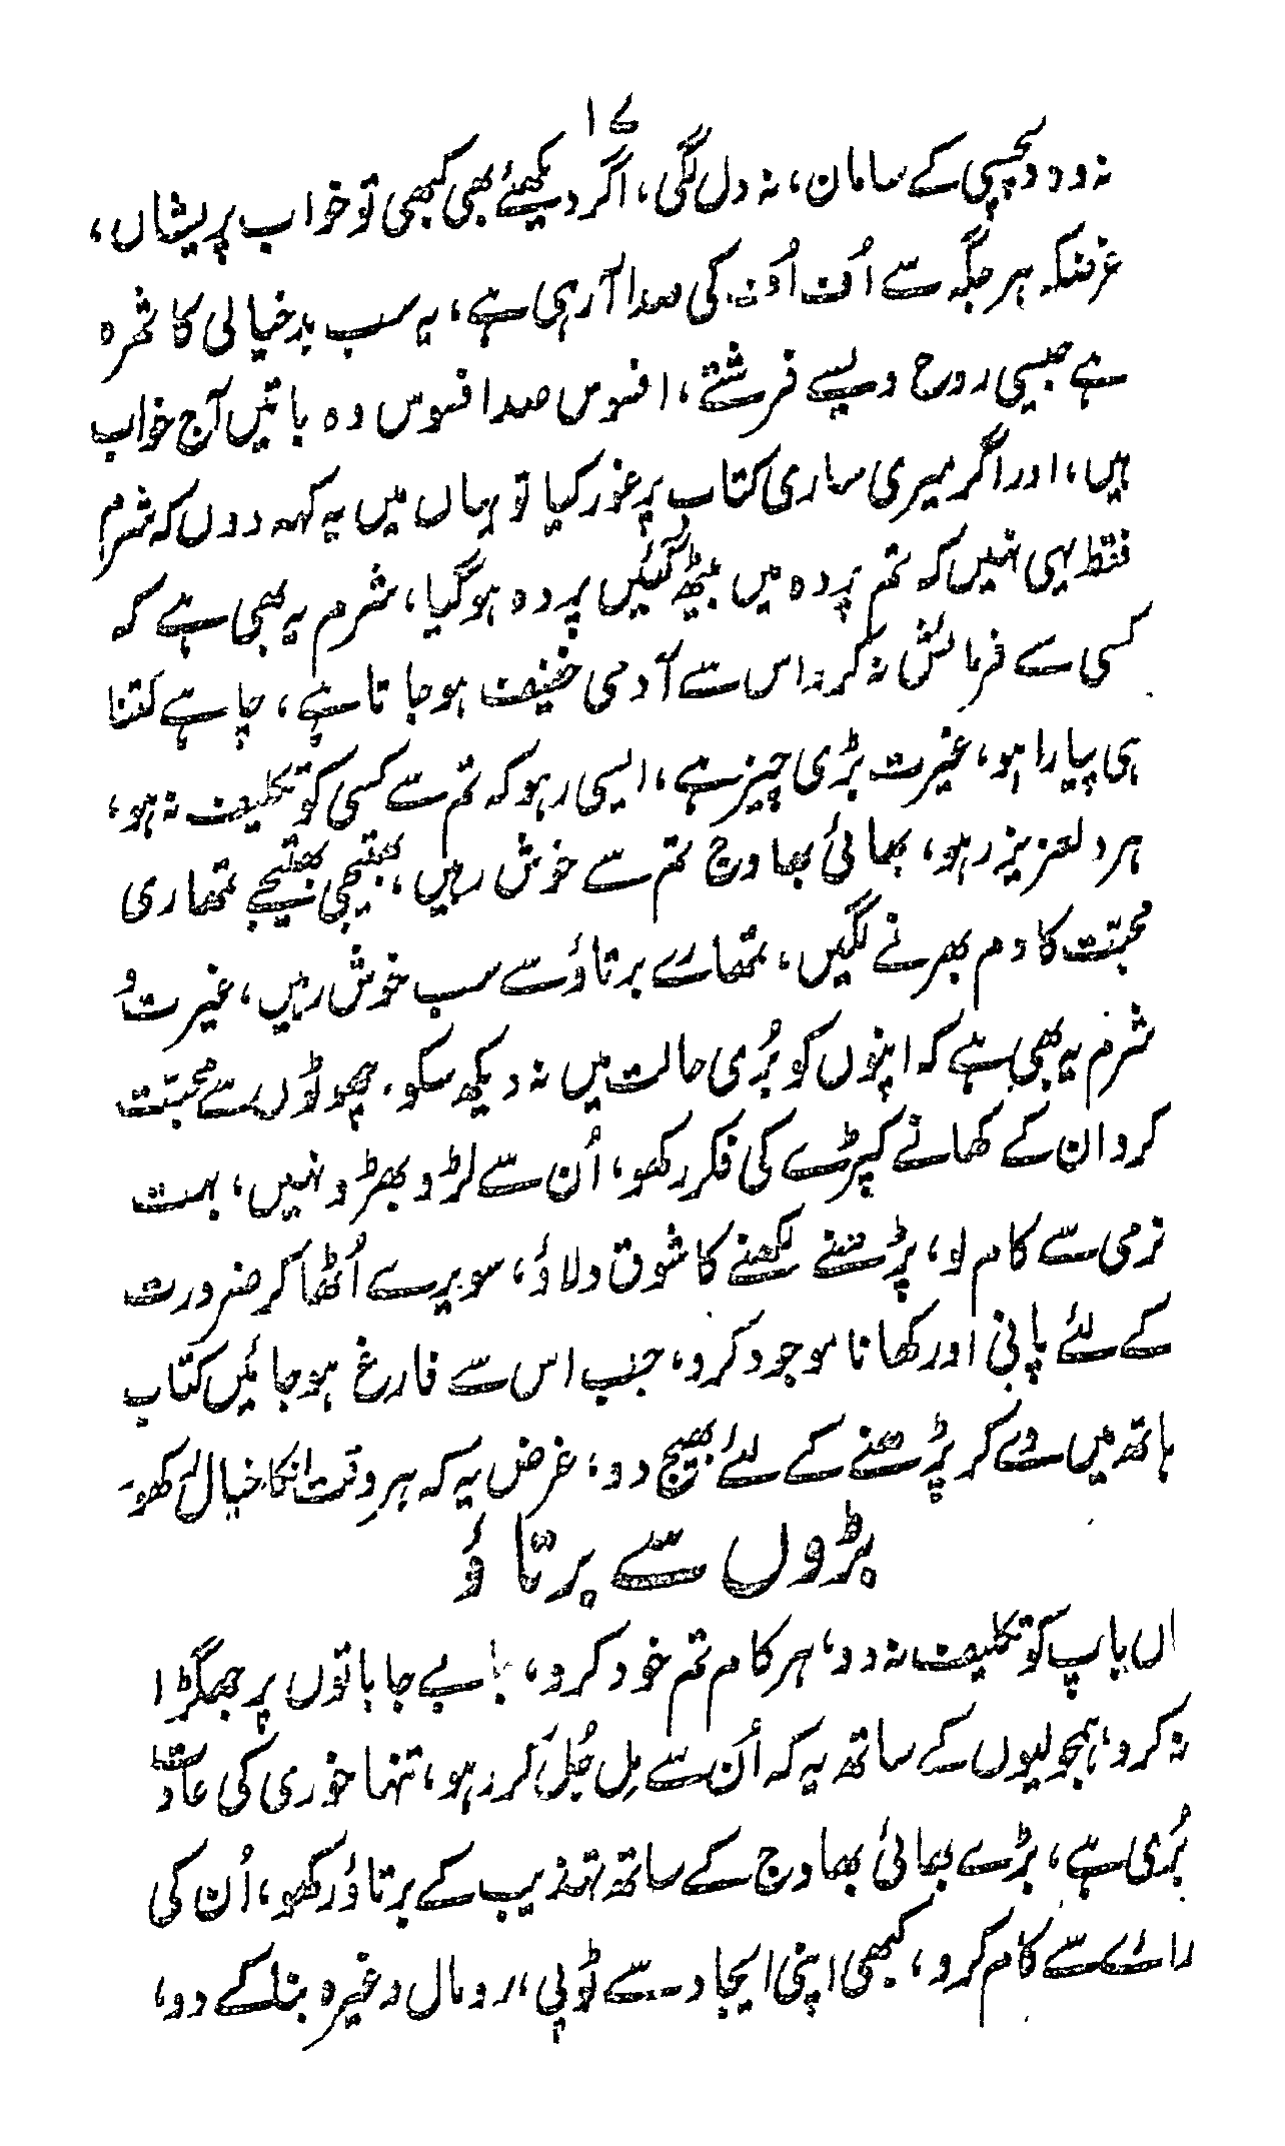 ۱۷
نہ وہ دلچسپی کے سامان، نہ دل لگی، اگر دیکھئے بھی کبھی تو خواب پریشاں،
غرضکہ ہر جگہ سے اُف اُف کی صدا آرہی ہے، یہ سب بدخیالی کا ثمرہ
ہے جیسی روح ویسے فرشتے، افسوس صد افسوس وہ باتیں آج خواب
ہیں، اور اگر میری ساری کتاب پر غور کیا تو یہاں میں یہ کہہ دوں کہ شرم
فقط یہی نہیں کہ تم پردہ میں بیٹھ گئیں پردہ ہوگیا، شرم یہ بھی ہے کہ
کسی سے فرمائش نہ کرو اس سے آدمی خفیف ہوجاتا ہے، چاہے کتنا
ہی پیارا ہو، غیرت بڑی چیز ہے، ایسی رہو کہ تم سے کسی کو تکلیف نہ ہو،
ہردلعزیز رہو، بھائی بھاوج تم سے خوش رہیں، بھتیجی بھتیجے تمھاری
محبّت کا دم بھرنے لگیں، تمھارے برتاؤ سے سب خوش رہیں، غیرت و
شرم یہ بھی ہے کہ اپنوں کو بُری حالت میں نہ دیکھ سکو۔ چھوٹوں سے محبّت
کرو ان کے کھانے کپڑے کی فکر رکھو، اُن سے لڑو بھڑو نہیں، بہت
نرمی سے کام لو، پڑھنے لکھنے کا شوق دلاؤ، سویرے اُٹھا کر ضرورت
کے لئے پانی اور کھانا موجود کرو، جب اس سے فارغ ہوجائیں کتاب
ہاتھ میں دے کر پڑھنے کے لئے بھیج دو، غرض یہ کہ ہر وقت انکا خیال رکھو۔
بڑوں سے برتاؤ
ماں باپ کو تکلیف نہ دو، ہر کام تم خود کرو، بے جا باتوں پر جھگڑا
نہ کرو، ہمجولیوں کے ساتھ یہ کہ اُن سے مِل جُل کر رہو، تنہا خوری کی عادت
بُری ہے، بڑے بھائی بھاوج کے ساتھ تہذیب کے برتاؤ رکھو، اُن کی
رائے سے کام کرو، کبھی اپنی ایجاد سے ٹوپی، رومال وغیرہ بنا کے دو،